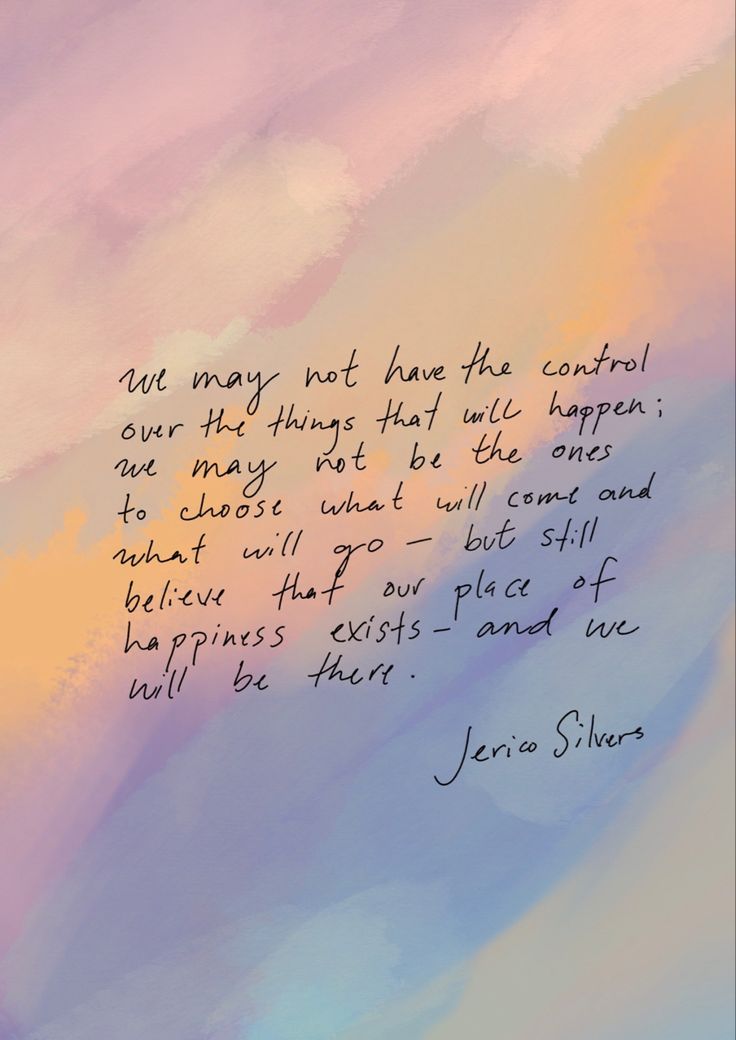 we may not have the control
over the things that will happen;
we may not be the ones
to choose what will come and
what will go – but still
believe that our place of
happiness exists – and we
will be there.
Jerico Silvers